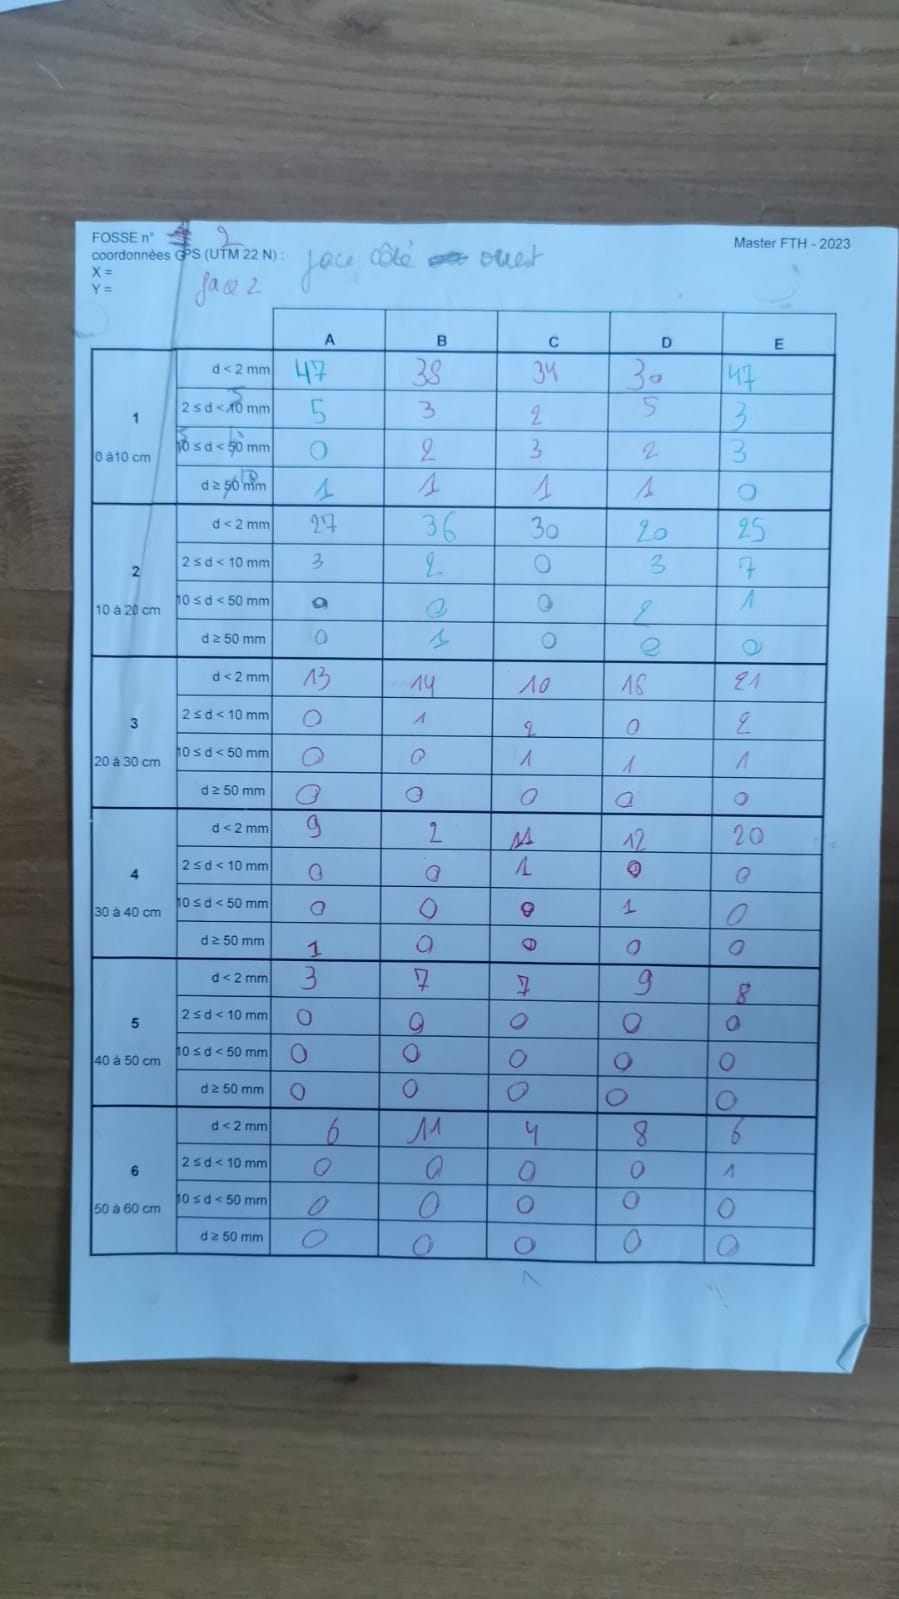 FOSSE n° 2
Master FTH - 2023
coordonnées GPS (UTM 22 N) : face côté ouest
X =
Y = face 2
A B C D E
1
0 à10 cm
d < 2 mm 47 38 34 30 47
2 ≤ d < 5 mm 5 3 2 5 3
≤ d < mm 0 2 3 2 3
d ≥ 10 mm 1 1 1 1 0
2
10 à 20 cm
d < 2 mm 27 36 30 20 25
2 ≤ d < 10 mm 3 2 0 3 7
10 ≤ d < 50 mm 0 0 0 2 1
d ≥ 50 mm 0 1 0 0 0
3
20 à 30 cm
d < 2 mm 13 14 10 21
2 ≤ d < 10 mm 0 1 2 0 2
10 ≤ d < 50 mm 0 0 1 1 1
d ≥ 50 mm 0 0 0 0 0
4
30 à 40 cm
d < 2 mm 9 2 11 12 20
2 ≤ d < 10 mm 0 0 1 0 0
10 ≤ d < 50 mm 0 0 0 1 0
d ≥ 50 mm 1 0 0 0 0
5
40 à 50 cm
d < 2 mm 3 7 7 9 8
2 ≤ d < 10 mm 0 0 0 0 0
10 ≤ d < 50 mm 0 0 0 0 0
d ≥ 50 mm 0 0 0 0 0
6
50 à 60 cm
d < 2 mm 6 11 4 8 6
2 ≤ d < 10 mm 0 0 0 0 1
10 ≤ d < 50 mm 0 0 0 0 0
d ≥ 50 mm 0 0 0 0 0